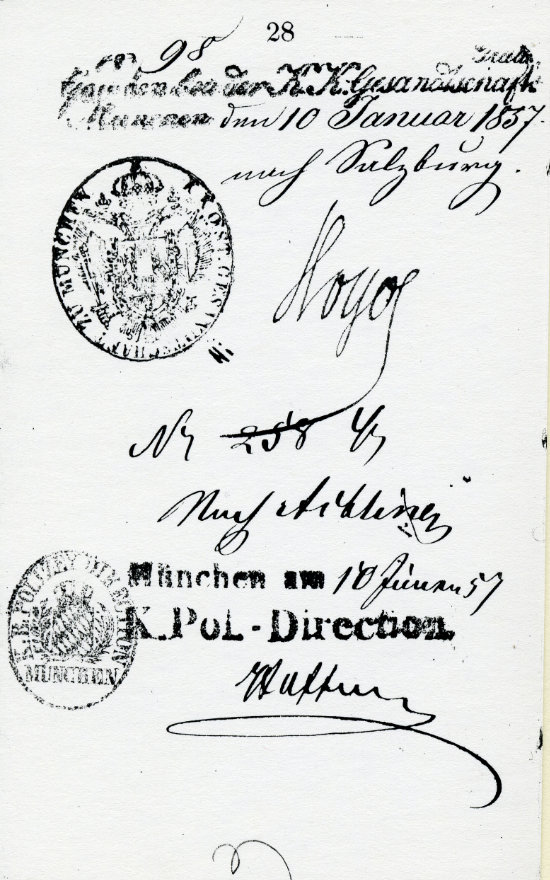 28
98 Gratis
Gesehen bei der K.K. Gesandtschaft
München den 10 Januar 1857.
nach Salzburg.
K.K. OEST. GESANDTSCHAFT ZU MÜNCHEN
Hoyos
No 258
Nach Aibling
München am 10 Jänner 57
K. Pol.-Direction.
K.B. POLIZEY DIREKTION
MÜNCHEN